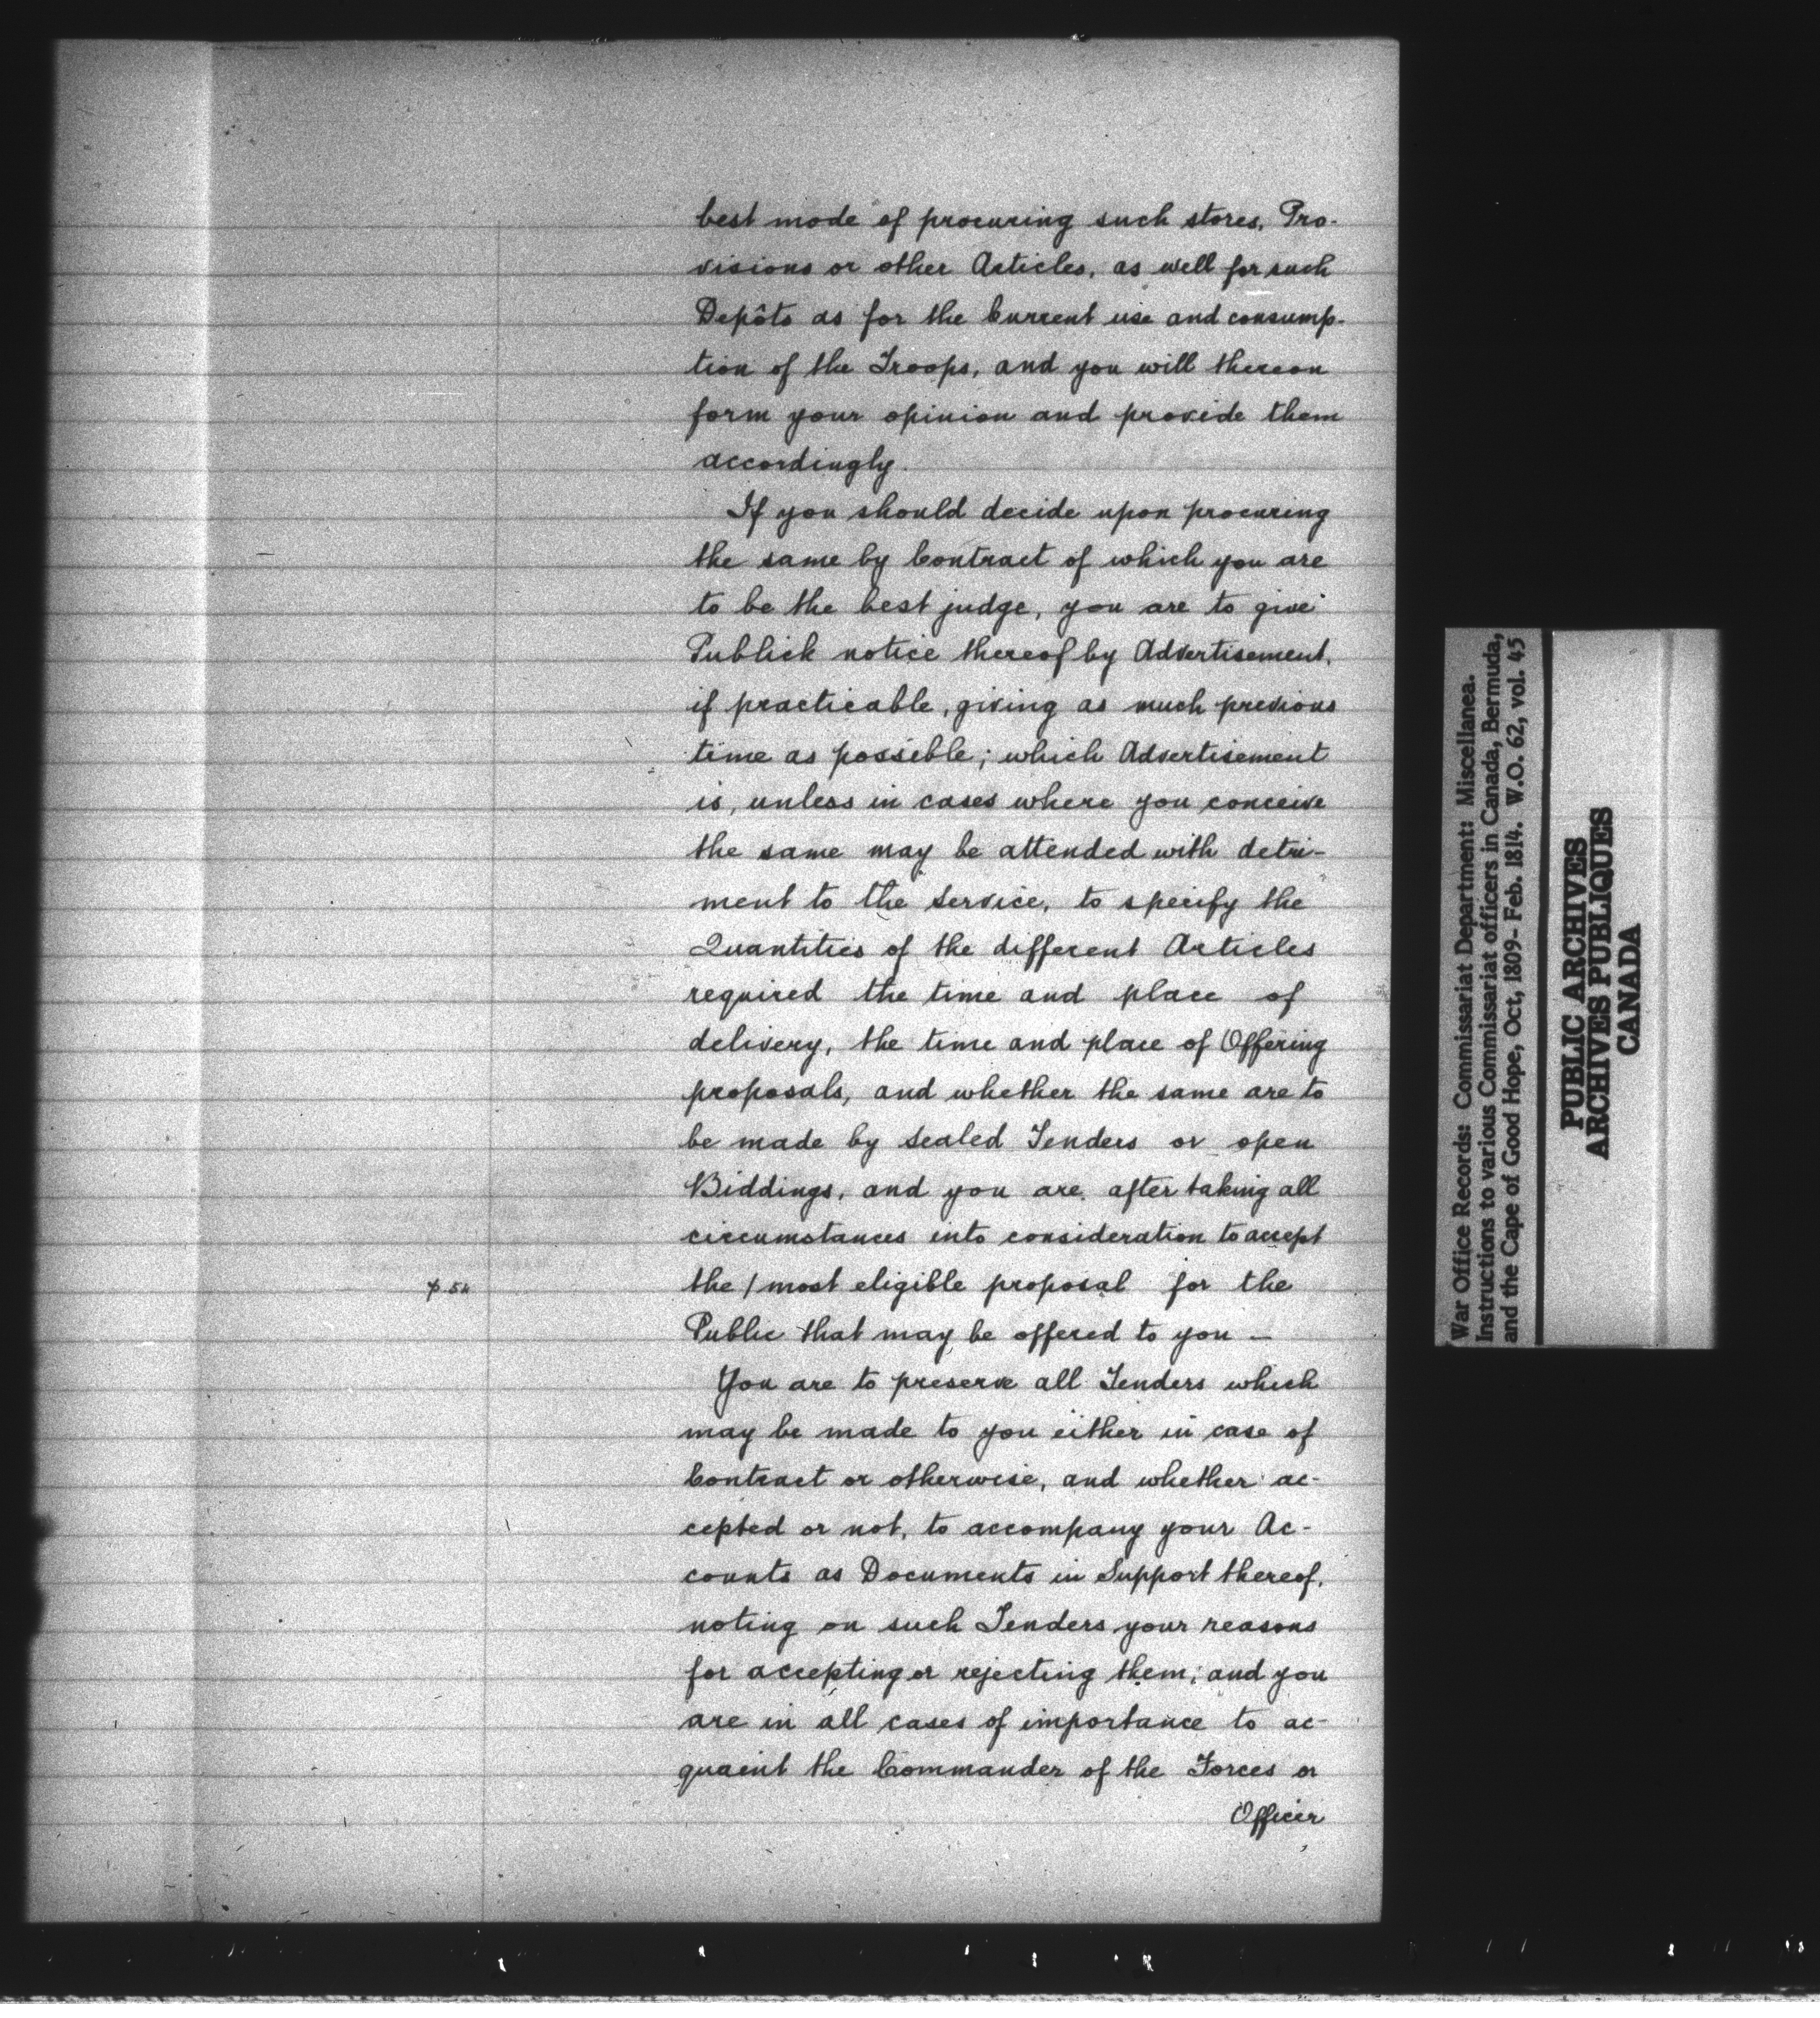 best mode of procuring such stores, Pro-
visions or other Articles, as well for such
Depôts as for the Current use and consump-
tion of the Troops, and you will thereon
form your opinion and provide them
accordingly.
If you should decide upon procuring
the same by Contract of which you are
to be the best judge, you are to give
Publick notice thereof by Advertisement,
if practicable, giving as much previous
time as possible; which Advertisement
is, unless in cases where you conceive
the same may be attended with detri-
ment to the Service, to specify the
Quantities of the different Articles
required the time and place of
delivery, the time and place of Offering
proposals, and whether the same are to
be made by Sealed Tenders or open
Biddings, and you are, after taking all
circumstances into consideration to accept
p. 54
the / most eligible proposal for the
Public that may be offered to you —
You are to preserve all Tenders which
may be made to you either in case of
Contract or otherwise, and whether ac-
cepted or not, to accompany your Ac-
counts as Documents in Support thereof,
noting on such Tenders your reasons
for accepting or rejecting them; and you
are in all cases of importance to ac-
quaint the Commander of the Forces or
Officer
War Office Records: Commissariat Department: Miscellanea.
Instructions to various Commissariat officers in Canada, Bermuda,
and the Cape of Good Hope, Oct, 1809- Feb. 1814. W.O. 62, vol. 45
PUBLIC ARCHIVES
ARCHIVES PUBLIQUES
CANADA